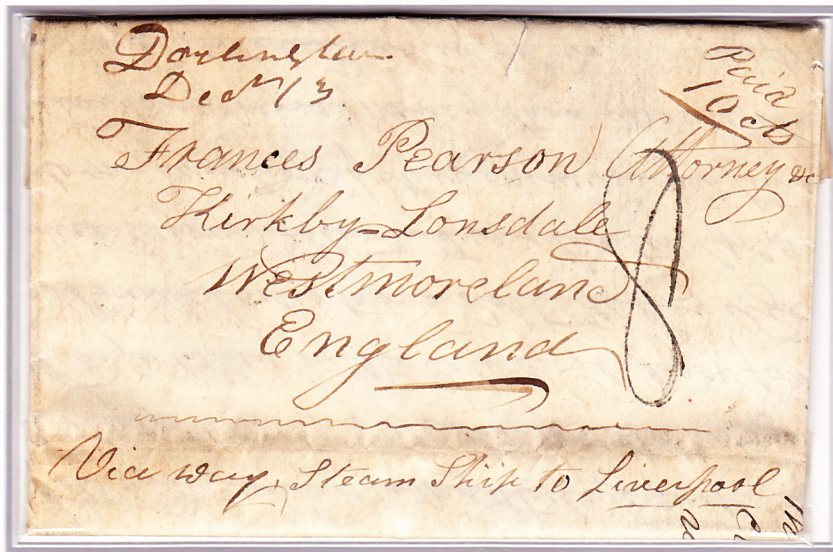 Darlington
Decr 13
Paid
10 cts
Frances Pearson Attorney &c
Kirkby=Lonsdale
Westmoreland
England
8
Via way, Steam Ship to Liverpool